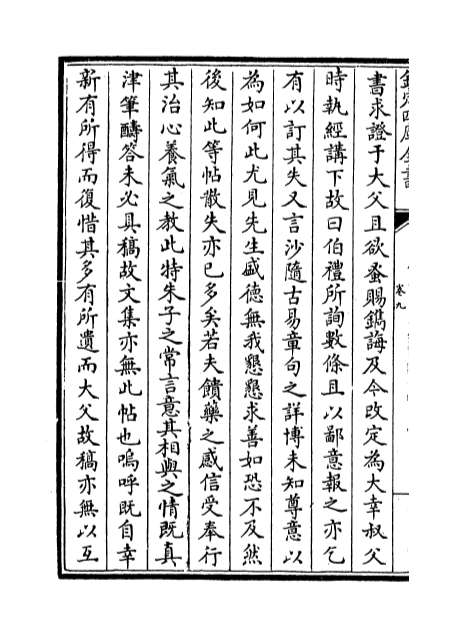 欽定四庫全書
卷九
書求證于大父且欲蚤賜鐫誨及今改定為大幸叔父
時執經講下故曰伯禮所詢數條且以鄙意報之亦乞
有以訂其失又言沙隨古易章句之詳博未知尊意以
為如何此尤見先生盛德無我懇懇求善如恐不及然
後知此等帖散失亦已多矣若夫饋藥之感信受奉行
其治心養氣之教此特朱子之常言意其相與之情既真
津筆疇答未必具稿故文集亦無此帖也嗚呼既自幸
新有所得而復惜其多有所遺而大父故稿亦無以互